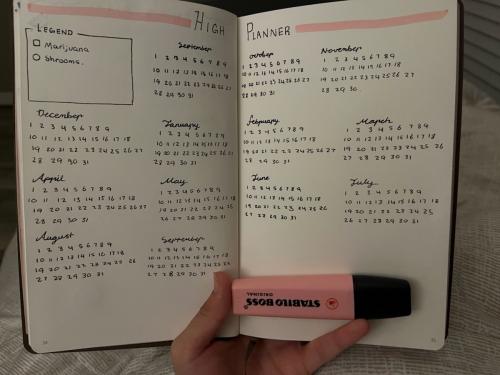 HIGH PLANNER
LEGEND
Marijuana
Shrooms.
September
1 2 3 4 5 6 7 8 9
10 11 12 13 14 15 16 17 18
19 20 21 22 23 24 25 26 27
28 29 30 31
October
1 2 3 4 5 6 7 8 9
10 11 12 13 14 15 16 17 18
19 20 21 22 23 24 25 26 27
28 29 30 31
November
1 2 3 4 5 6 7 8 9
10 11 12 13 14 15 16 17 18
19 20 21 22 23 24 25 26 27
28 29 30
December
1 2 3 4 5 6 7 8 9
10 11 12 13 14 15 16 17 18
19 20 21 22 23 24 25 26 27
28 29 30 31
January
1 2 3 4 5 6 7 8 9
10 11 12 13 14 15 16 17 18
19 20 21 22 23 24 25 26 27
28 29 30 31
february
1 2 3 4 5 6 7 8 9
10 11 12 13 14 15 16 17 18
19 20 21 22 23 24 25 26 27
28 29 30 31
March
1 2 3 4 5 6 7 8 9
10 11 12 13 14 15 16 17 18
19 20 21 22 23 24 25 26
27 28 29 30 31
April
1 2 3 4 5 6 7 8 9
10 11 12 13 14 15 16 17 18
19 20 21 22 23 24 25 26 27
28 29 30 31
May
1 2 3 4 5 6 7 8 9
10 11 12 13 14 15 16 17 18
19 20 21 22 23 24 25
26 27 28 29 30 31
June
1 2 3 4 5 6 7 8 9
10 11 12 13 14 15 16 17 18
19 20 21 22 23 24 25 26
27 28 29 30 31
July
1 2 3 4 5 6 7 8 9
10 11 12 13 14 15 16 17 18
19 20 21 22 23 24 25
26 27 28 29 30 31
August
1 2 3 4 5 6 7 8 9
10 11 12 13 14 15 16 17 18
19 20 21 22 23 24 25 26
27 28 29 30 31
September
1 2 3 4 5 6 7 8 9
10 11 12 13 14 15 16 17 18
19 20 21 22 23 24 25 26
27 28 29 30 31
STABILO BOSS
ORIGINAL